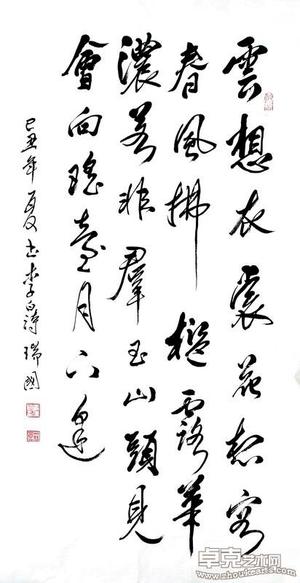 雲想衣裳花想容
春風拂檻露華
濃若非羣玉山頭見
會向瑤臺月下逢
己丑年夏书李白诗瑞國
卓克艺术网
www.zhuokearts.com